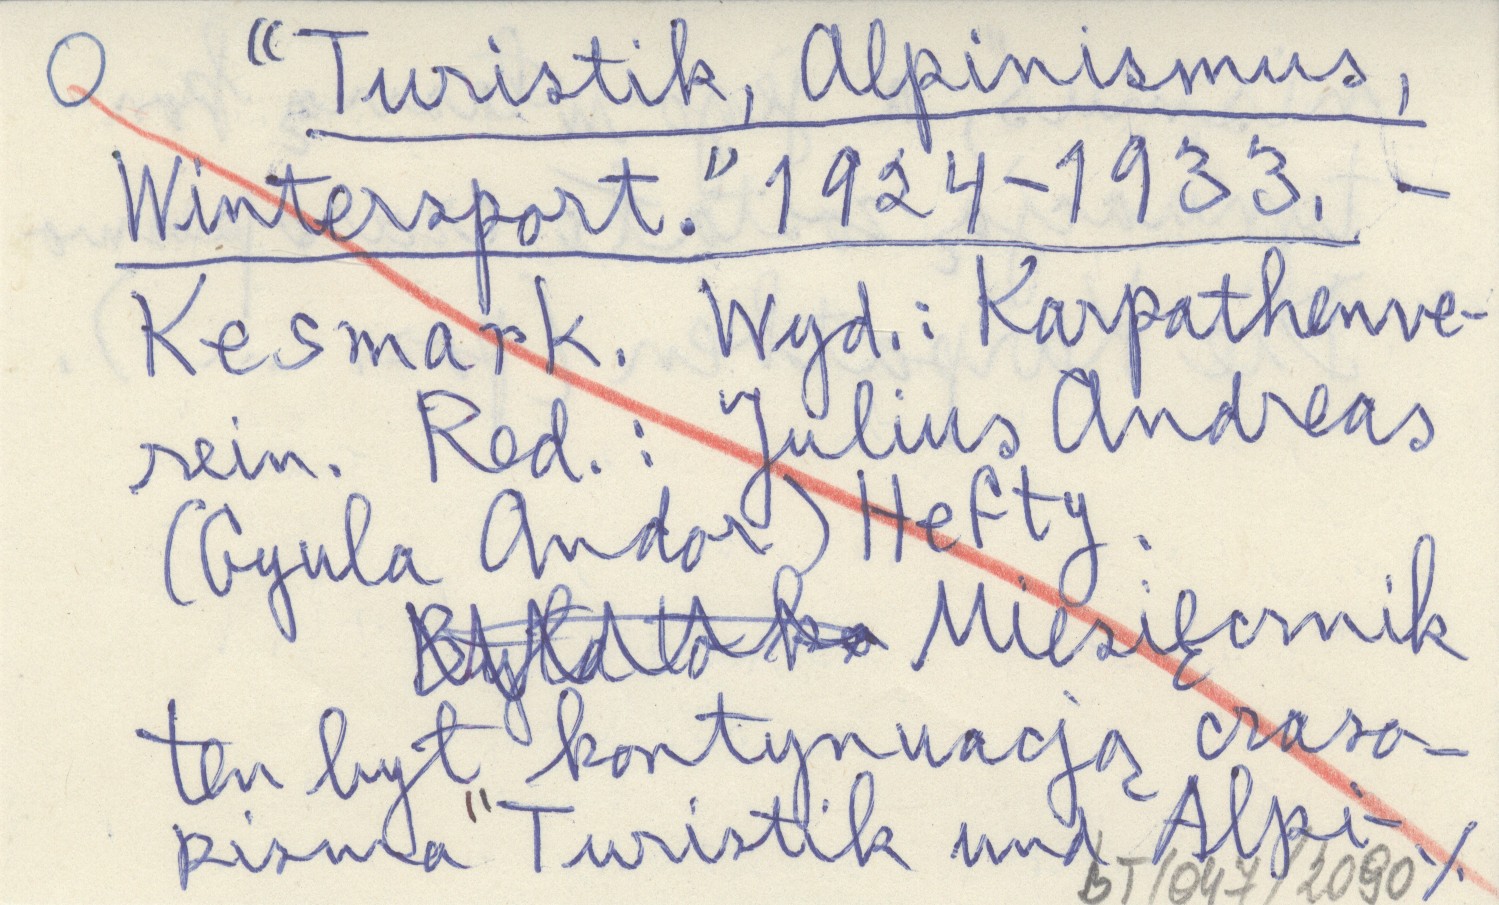 O "Turistik, Alpinismus,
Wintersport." 1924-1933. -
Kesmark. Wyd.: Karpathenve-
rein. Red.: Julius Andreas
(Gyula Andor) Hefty.
Miesięcznik
ten był kontynuacją czaso-
pisma "Turistik und Alpi-
BT/047/2090 ./.